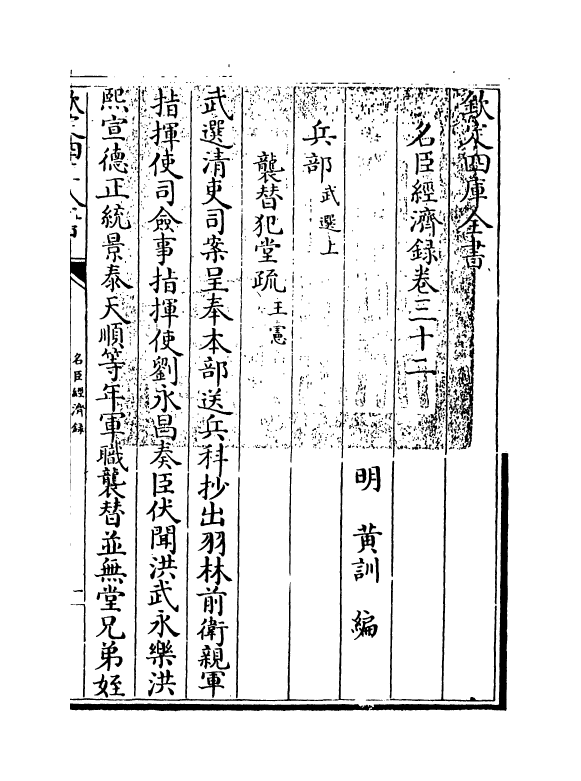 欽定四庫全書
名臣經濟錄卷三十二
明 黃訓 編
兵部武選上
襲替犯堂疏王憲
武選清吏司案呈奉本部送兵科抄出羽林前衛親軍
指揮使司僉事指揮使劉永昌奏臣伏聞洪武永樂洪
熙宣德正統景泰天順等年軍職襲替並無堂兄弟姪
名臣經濟錄